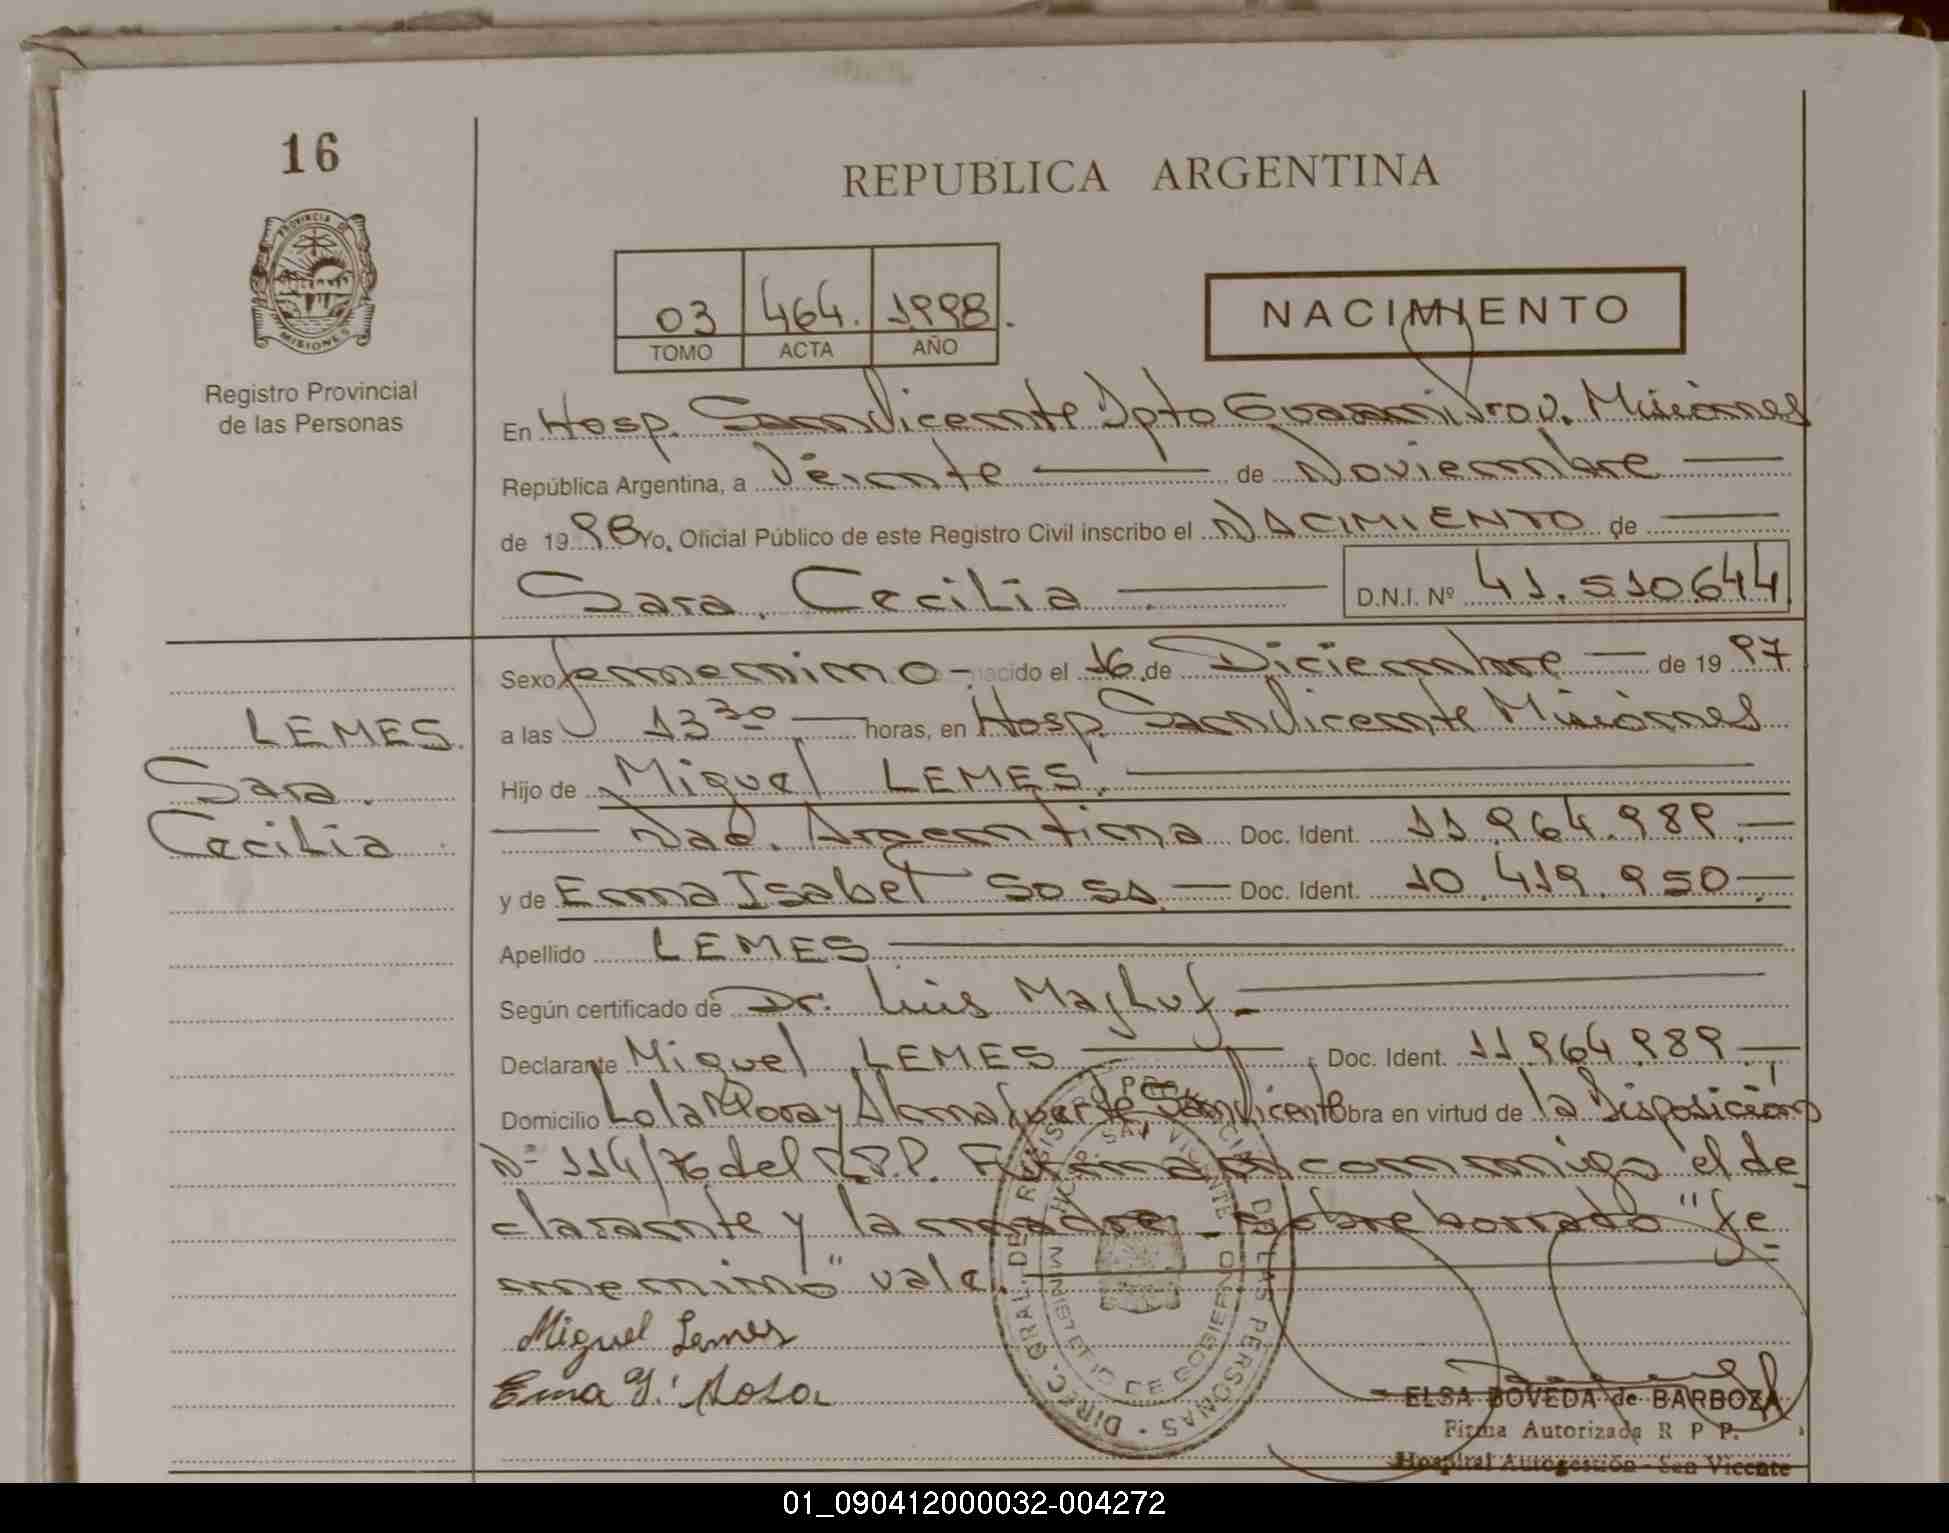 16
REPUBLICA ARGENTINA
PROVINCIA DE MISIONES
Registro Provincial
de las Personas
03 464. 1998.
TOMO ACTA AÑO
NACIMIENTO
En Hosp. San Vicente Dpto Guarani Prov. Misiones
República Argentina, a Veinte de Noviembre
de 1998 Yo, Oficial Público de este Registro Civil inscribo el NACIMIENTO de
Sara Cecilia D.N.I. Nº 41.510.644
LEMES
Sara
Cecilia
Sexo femenino nacido el 16 de Diciembre de 1997
a las 13 30 horas, en Hosp. San Vicente Misiones
Hijo de Miguel LEMES.
Nac. Argentina Doc. Ident. 11.964.989.
y de Ema Isabel SOSA Doc. Ident. 10.419.950
Apellido LEMES
Según certificado de Dr. Luis
Declarante Miguel LEMES Doc. Ident. 11.964.989
Domicilio Lola Mora y Almafuerte San Vicente Obra en virtud de la Disposición
Nº 114/76 del R.P.P. Firman conmigo el de
clarante y la madre - sobre borrado "fe
menino" vale.
Miguel Lemes
Ema I. Sosa
DIREC. GRAL. DEL REGISTRO PROVINCIAL DE LAS PERSONAS
HOSP. SAN VICENTE
MINISTERIO DE GOBIERNO
ELSA BOVEDA de BARBOZA
Firma Autorizada R P P.
Hospital Autogestión - San Vicente
01_090412000032-004272